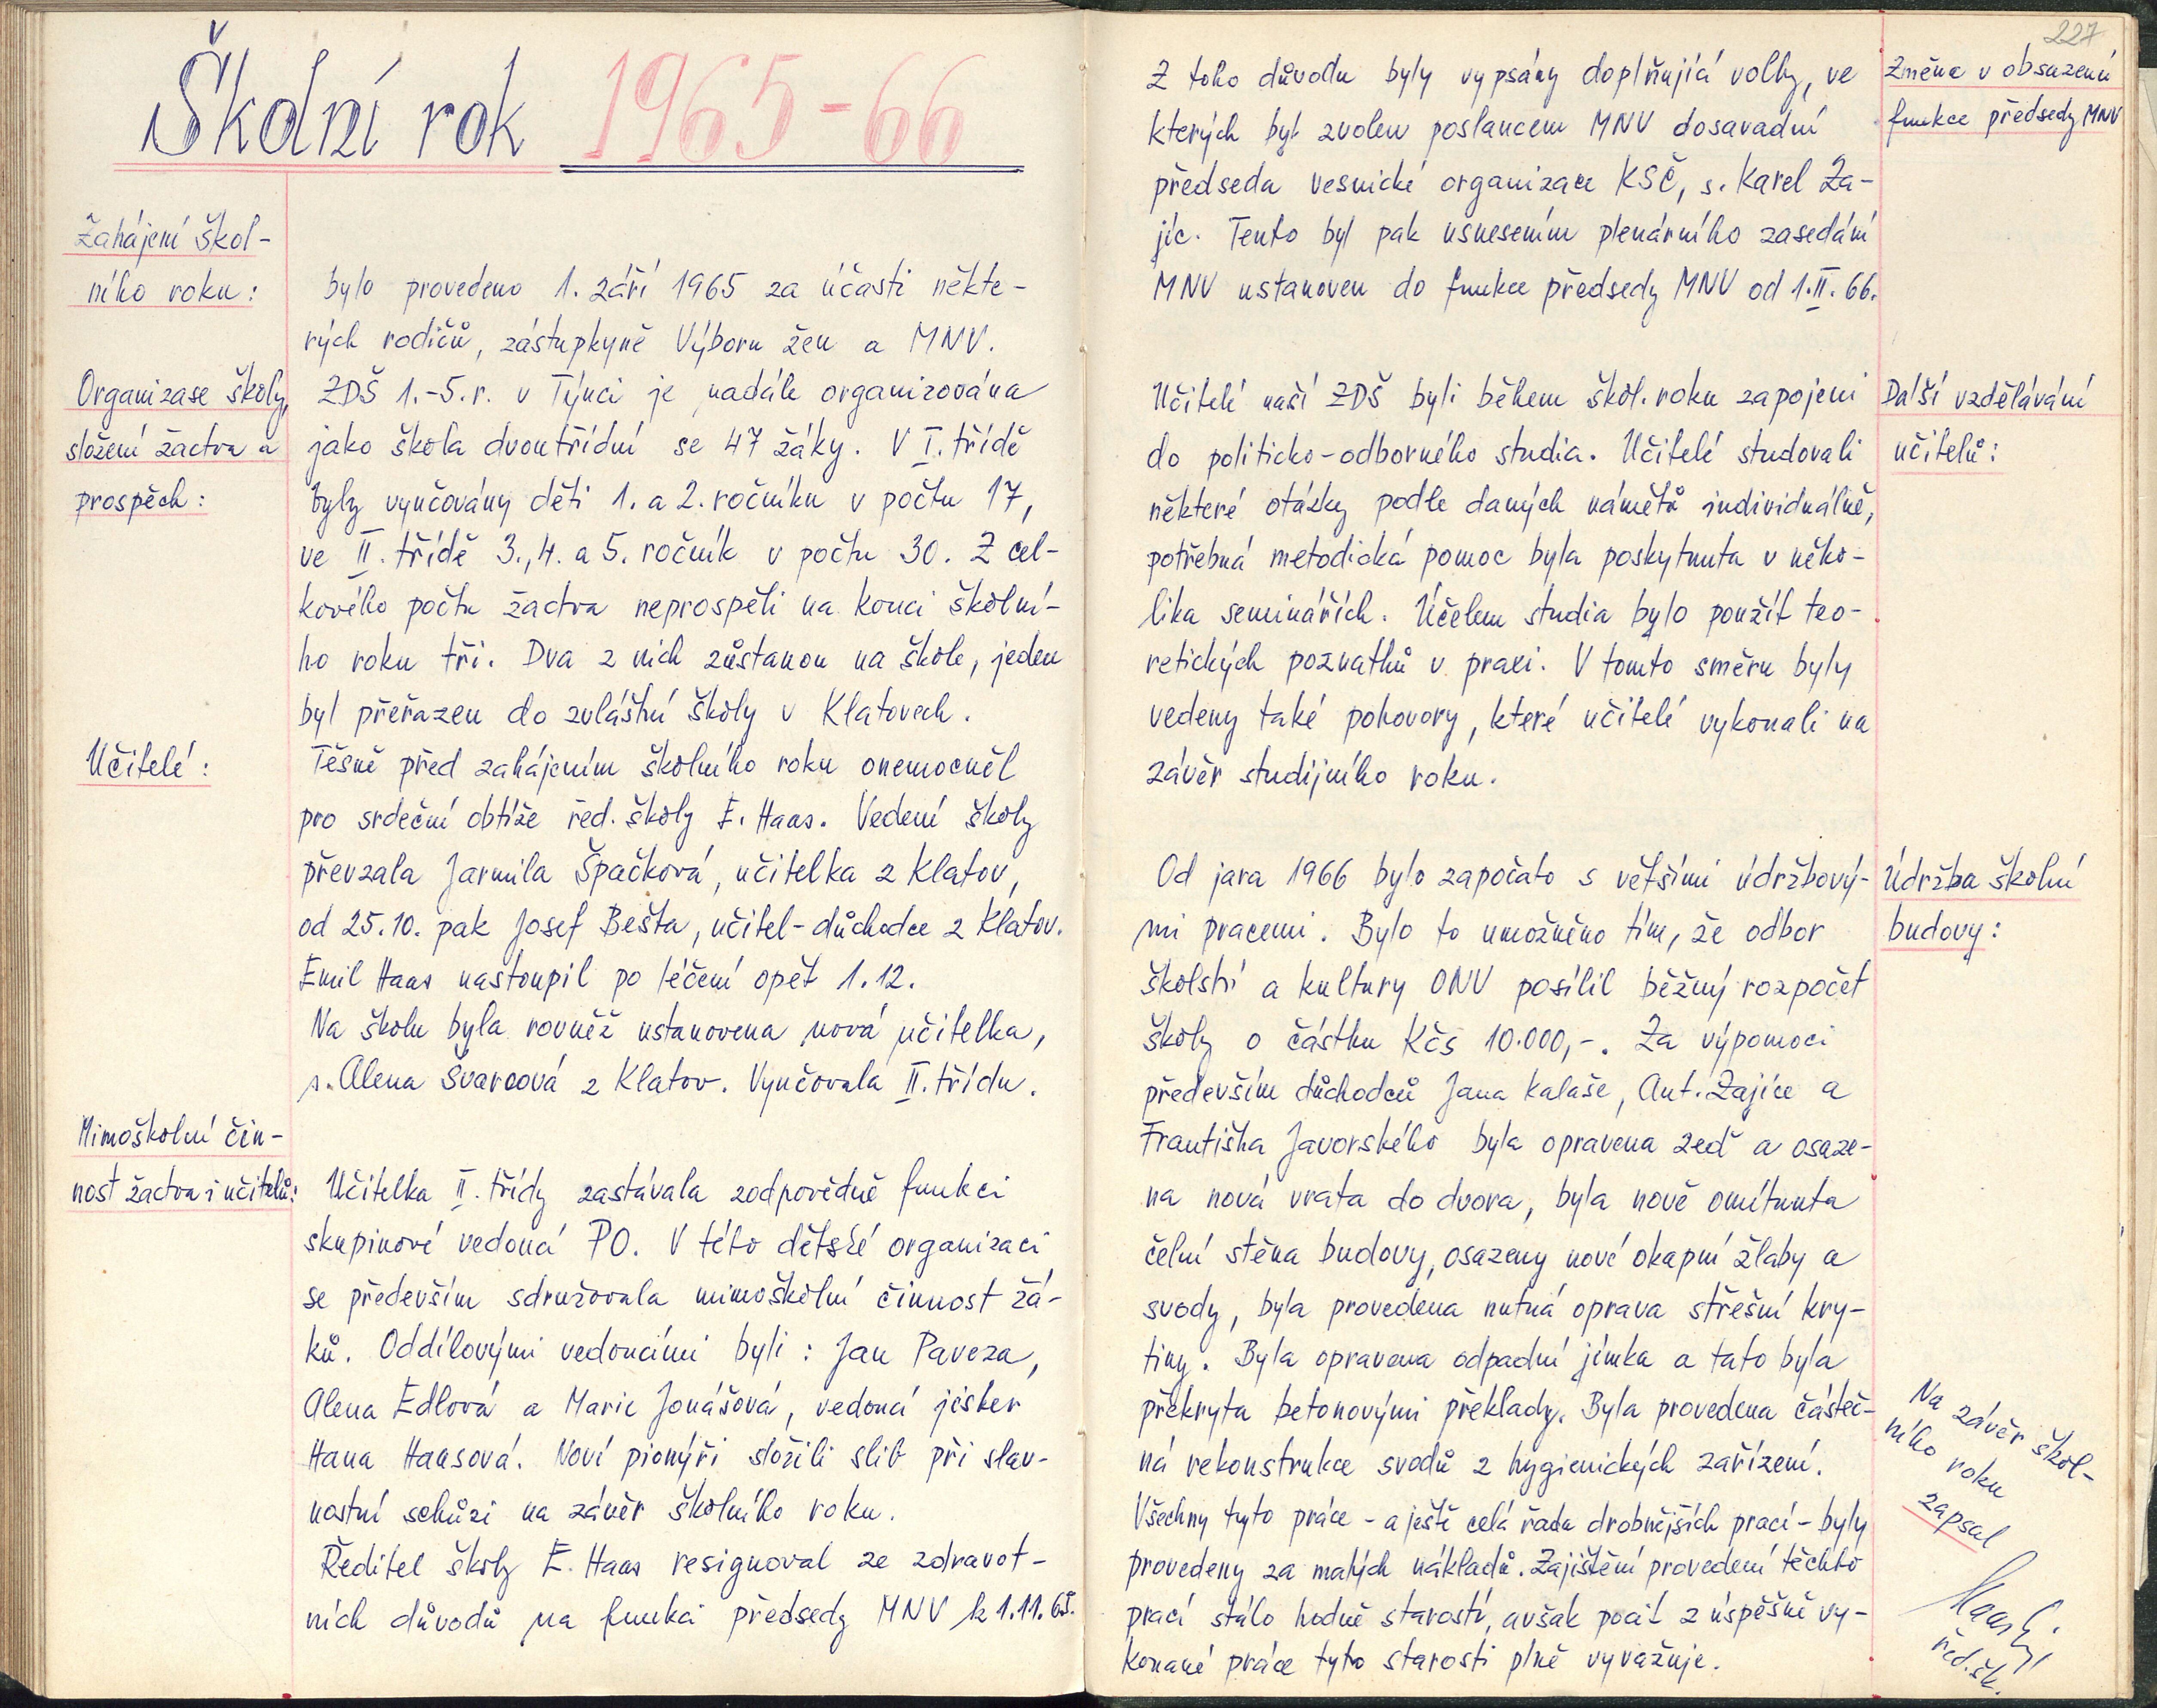 Školní rok 1965-66
Zahájení škol-
ního roku:
bylo provedeno 1. září 1965 za účasti někte-
rých rodičů, zástupkyně Výboru žen a MNV.
Organizase školy,
složení žactva a
prospěch:
ZDŠ 1.-5.r. v Týnci je nadále organizována
jako škola dvoutřídní se 47 žáky. V I. třídě
byly vyučovány děti 1. a 2. ročníku v počtu 17,
ve II. třídě 3., 4. a 5. ročník v počtu 30. Z cel-
kového počtu žactva neprospěli na konci školní-
ho roku tři. Dva z nich zůstanou na škole, jeden
byl přeřazen do zvláštní školy v Klatovech.
Učitelé:
Těsně před zahájením školního roku onemocněl
pro srdeční obtíže řed. školy E. Haas. Vedení školy
převzala Jarmila Špačková, učitelka z Klatov,
od 25.10. pak Josef Bešta, učitel-důchodce z Klatov.
Emil Haas nastoupil po léčení opět 1.12.
Na školu byla rovněž ustanovena nová učitelka,
s. Alena Švarcová z Klatov. Vyučovala II. třídu.
Mimoškolní čin-
nost žactva i učitelů:
Učitelka II. třídy zastávala zodpovědně funkci
skupinové vedoucí PO. V této dětské organizaci
se především sdružovala mimoškolní činnost žá-
ků. Oddílovými vedoucími byli: Jan Paveza,
Alena Edlová a Marie Jonášová, vedoucí jisker
Hana Haasová. Noví pionýři složili slib při slav-
nostní schůzi na závěr školního roku.
Ředitel školy E. Haas resignoval ze zdravot-
ních důvodů na funkci předsedy MNV k 1.11.65.
227
Z toho důvodu byly vypsány doplňující volby, ve
kterých byl zvolen poslancem MNV dosavadní
předseda vesnické organizace KSČ, s. Karel Za-
jíc. Tento byl pak usnesením plenárního zasedání
MNV ustanoven do funkce předsedy MNV od 1.II.66.
Změna v obsazení
funkce předsedy MNV
Učitelé naší ZDŠ byli během škol. roku zapojeni
do politicko-odborného studia. Učitelé studovali
některé otázky podle daných námětů individuálně,
potřebná metodická pomoc byla poskytnuta v něko-
lika seminářích. Účelem studia bylo použít teo-
retických poznatků v praxi. V tomto směru byly
vedeny také pohovory, které učitelé vykonali na
závěr studijního roku.
Další vzdělávání
učitelů:
Od jara 1966 bylo započato s většími údržbový-
mi pracemi. Bylo to umožněno tím, že odbor
školství a kultury ONV posílil běžný rozpočet
školy o částku Kčs 10.000,-. Za výpomoci
především důchodců Jana Kalaše, Ant. Zajíce a
Františka Javorského byla opravena zeď a osaze-
na nová vrata do dvora, byla nově omítnuta
čelní stěna budovy, osazeny nové okapní žlaby a
svody, byla provedena nutná oprava střešní kry-
tiny. Byla opravena odpadní jímka a tato byla
překryta betonovými překlady. Byla provedena částeč-
ná rekonstrukce svodů z hygienických zařízení.
Všechny tyto práce - a ještě celá řada drobnějších prací - byly
provedeny za malých nákladů. Zajištění provedení těchto
prací stálo hodně starostí, avšak pocit z úspěšně vy-
konané práce tyto starosti plně vyvažuje.
Údržba školní
budovy:
Na závěr škol-
ního roku
zapsal
Haas E.
řed. šk.